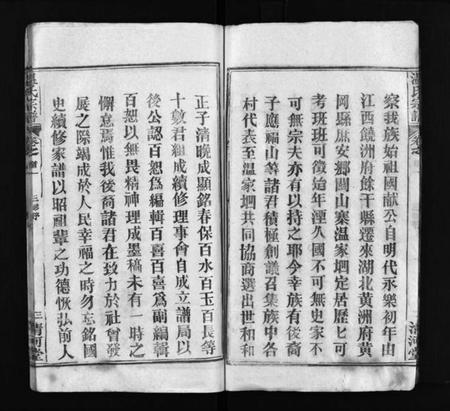 溫氏宗譜
察我族始祖國獻公自明代永樂初年由
江西饒洲府餘干縣遷來湖北黃洲府黃
岡縣庶安鄉團山寨溫家堋定居歷匕可
考班班可徵始年湮久國不可無史家不
可無宗夫亦有以持之耶今幸族有後裔
子應福山等諸君積極創議召集族中各
村代表至溫家堋共同協商選出世和和
清河堂
正子清晚成顯銘春保百水百玉百長等
十數君組成續修理事會自成立譜局以
後公認百恕爲編輯百喜百喜爲副編輯
百恕以無畏精神理成墨稿未有一時之
懈怠焉惟我後裔諸君在致力於社會發
展之際竭成於人民幸福之時勿忘銘國
史續修家譜以昭祖輩之功德恢弘前人
溫氏宗譜
卷之
三
清河堂